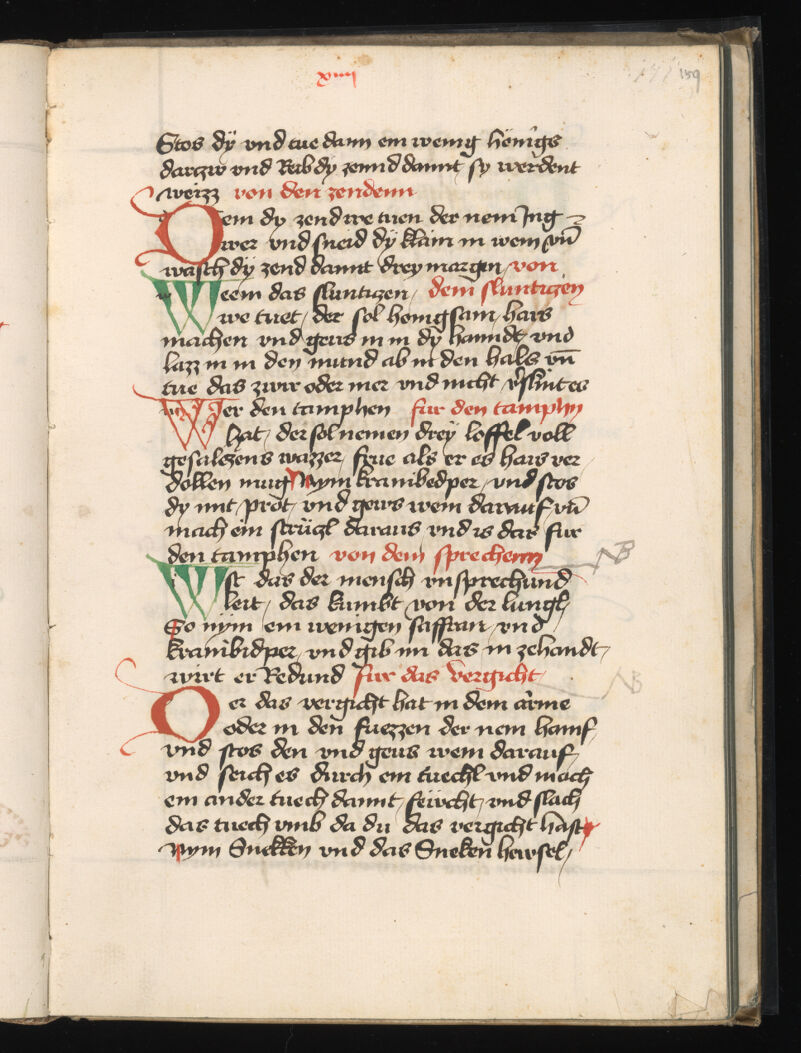 xiiij
159
Stos dÿ vnd tue dann ein wenig hönigs
darczw vnd Reib dy zennd damit sy werdent
weizz von den zendenn
Dem dy zend we tuen der nem Jng
wer vnd sneid dÿ klain in wein vn̄
wasch dÿ zend damit dreÿ margen von
Weem das sluntigen dem sluntigen
we tuet der sol honigsam hars
machen vnd geus in in dÿ hanndt vnd
lazz in in den mund ab in den hals vn̄
tue das zwir oder mer vnd nicht v̄slint es
Wer den tamphen fur den tamphn
hat der sol nemen dreÿ loffel voll
gesalczens wazzer frue als er es hais ver
dollen mug Nym kranibedper vnd stos
dy mit prot vnd geus wein darauf vn̄
mach ein strüczl daraus vnd is das fur
den tamphen von dem sprechenn
NB
Ist das der mensch vnsprechund
leit das kumbt von der lungl
So nym ein wenigen saffran vnd
kranibidper vnd gib im das in zehandt
wirt er Redund fur das vergicht
NB
Der das vergicht hat in dem arme
oder in den fuezzen der nem hanif
vnd stos den vnd geus wein darauf
vnd seich es durch ein tuechl vnd mach
ein ander tuech damit feücht vnd slach
das tuech vmb da du das vergicht hast
Nym Snekken vnd das Sneken hewsel